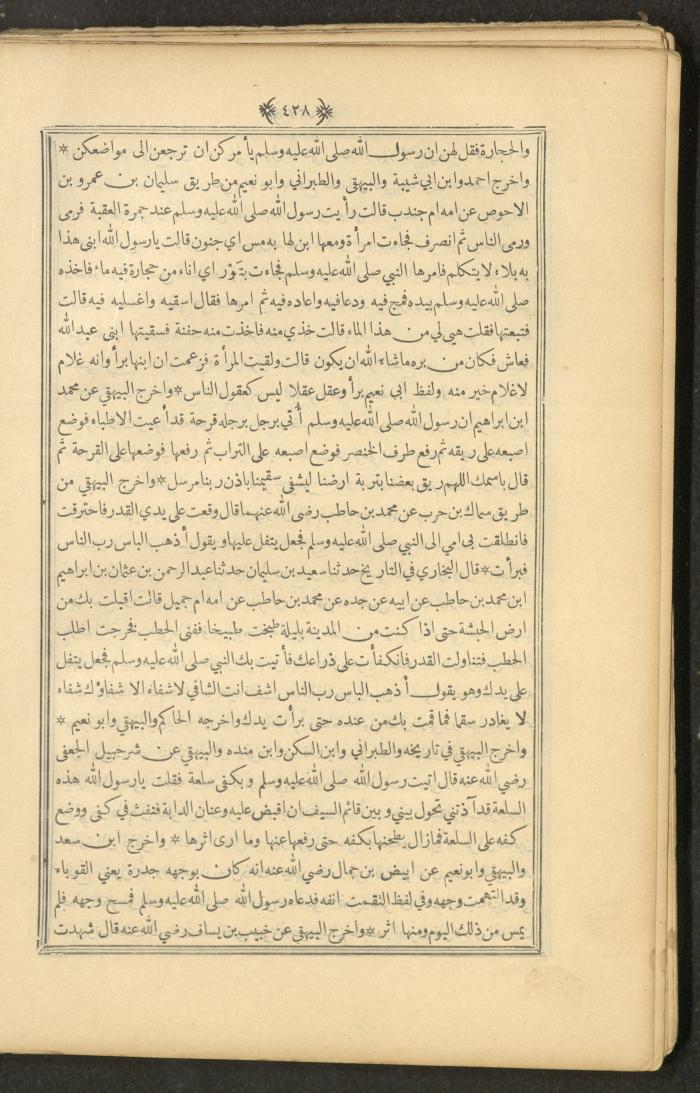 ٤٢٨
والحجارة فقل لهن ان رسول الله صلى الله عليه وسلم يأمركن ان ترجعن الى مواضعكن *
واخرج احمد وابن ابي شيبة والبيهقي والطبراني وابو نعيم من طريق سليمان بن عمرو بن
الاحوص عن امه ام جندب قالت رأيت رسول الله صلى الله عليه وسلم عند جمرة العقبة فرمى
ورمى الناس ثم انصرف فجاءت امرأة ومعها ابن لها به مس اي جنون قالت يارسول الله ابنى هذا
به بلاء لا يتكلم فامرها النبي صلى الله عليه وسلم فجاءت بتَوْر اي اناء من حجارة فيه ماء فاخذه
صلى الله عليه وسلم بيده فمج فيه ودعا فيه واعاده فيه ثم امرها فقال اسقيه واغسليه فيه قالت
فتبعتها فقلت هبي لي من هذا الماء قالت خذي منه فاخذت منه حفنة فسقيتها ابنى عبد الله
فعاش فكان من بره ماشاء الله ان يكون قالت ولقيت المرأة فزعمت ان ابنها برأ وانه غلام
لا غلام خير منه ولفظ ابى نعيم برأ وعقل عقلا ليس كعقول الناس * واخرج البيهقي عن محمد
ابن ابراهيم ان رسول الله صلى الله عليه وسلم أُتي برجل برجله قرحة قد أعيت الاطباء فوضع
اصبعه على ريقه ثم رفع طرف الخنصر فوضع اصبعه على التراب ثم رفعها فوضعها على القرحة ثم
قال باسمك اللهم ريق بعضنا بتربة ارضنا ليشفى سقيمنا باذن ربنا مرسل * واخرج البيهقي من
طريق سماك بن حرب عن محمد بن حاطب رضى الله عنهما قال وقعت على يدي القدر فاحترقت
فانطلقت بى امي الى النبي صلى الله عليه وسلم فجعل يتفل عليها ويقول أذهب الباس رب الناس
فبرأت * قال البخاري في التاريخ حدثنا سعيد بن سليمان حدثنا عبد الرحمن بن عثمان بن ابراهيم
ابن محمد بن حاطب عن ابيه عن جده عن محمد بن حاطب عن امه ام جميل قالت اقبلت بك من
ارض الحبشة حتى اذا كنت من المدينة بليلة طبخت طبيخا ففنى الحطب فخرجت اطلب
الحطب فتناولت القدر فانكفأت على ذراعك فأتيت بك النبي صلى الله عليه وسلم فجعل يتفل
على يدك وهو يقول أذهب الباس رب الناس اشف انت الشافي لا شفاء الا شفاؤك شفاء
لا يغادر سقما فما قمت بك من عنده حتى برأت يدك واخرجه الحاكم والبيهقي وابو نعيم *
واخرج البيهقي في تاريخه والطبراني وابن السكن وابن منده والبيهقي عن شرحبيل الجعفى
رضي الله عنه قال اتيت رسول الله صلى الله عليه وسلم وبكفى سلعة فقلت يارسول الله هذه
السلعة قد آذتني تحول بيني وبين قائم السيف ان اقبض عليه وعنان الدابة فنفث في كفى ووضع
كفه على السلعة فمازال يطحنها بكفه حتى رفعها عنها وما ارى اثرها * واخرج ابن سعد
والبيهقي وابو نعيم عن ابيض بن حمال رضي الله عنه انه كان بوجهه جدرة يعني القوباء
وقد التهمت وجهه وفي لفظ التقمت انفه فدعاه رسول الله صلى الله عليه وسلم فمسح وجهه فلم
يمس من ذلك اليوم ومنها اثر * واخرج البيهقي عن خبيب بن يساف رضي الله عنه قال شهدت